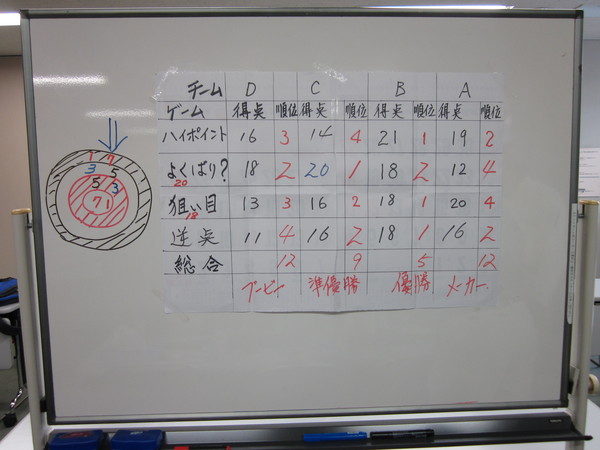 チーム D C B A
ゲーム 得点 順位 得点 順位 得点 順位 得点 順位
ハイポイント 16 3 14 4 21 1 19 2
よくばり? 18 2 20 1 18 2 12 4
20
狙い目 13 3 16 2 18 1 20 4
18
逆点 11 4 16 2 18 1 16 2
総合 12 9 5 12
ブービー 準優勝 優勝 メーカー
1 7
3 5
5 3
7 1